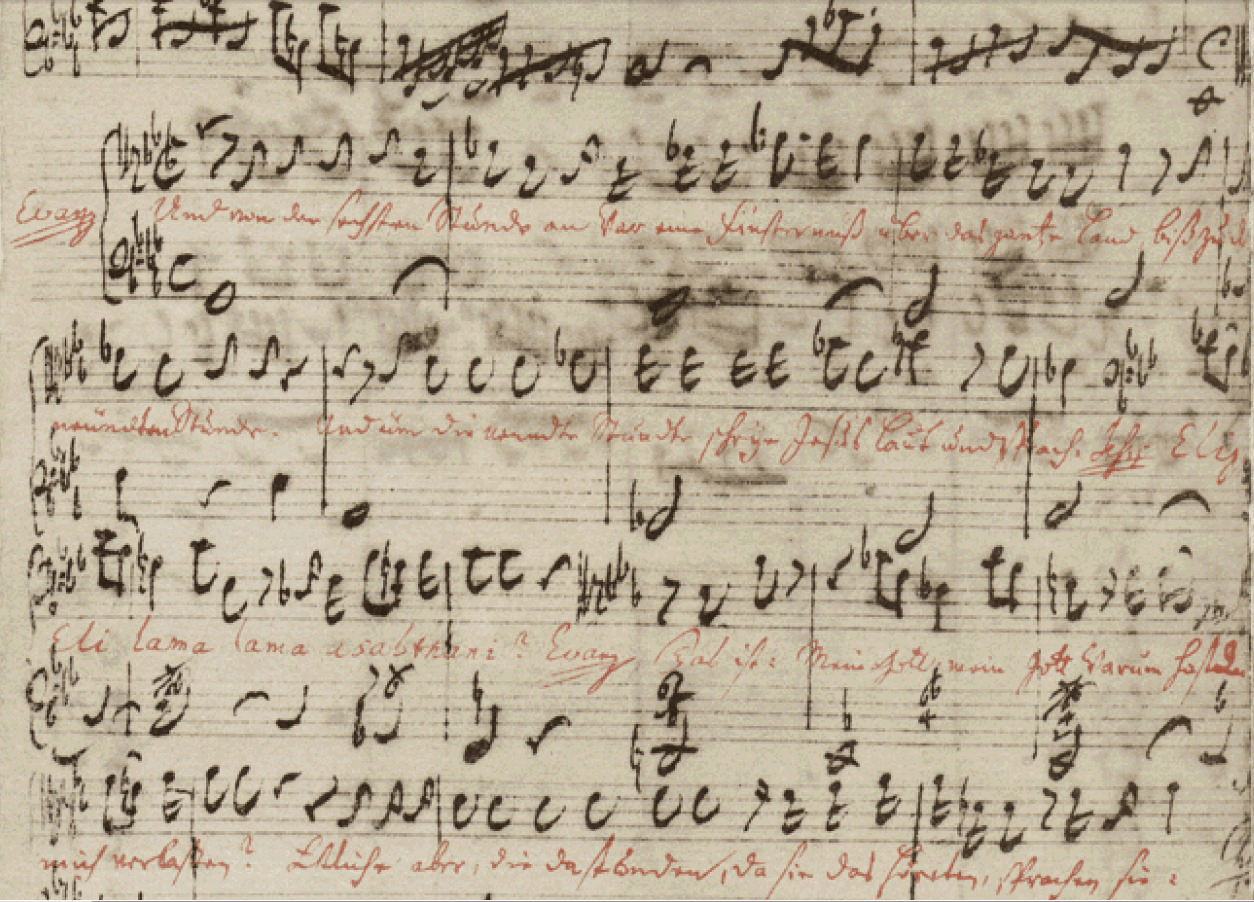 Evang Und von der sechsten Stunde an war eine Finsterniß über das gantze Land biß zu d
neündten Stunde. Und üm die neundte Stunde schrye Jesus laut und sprach. Jesus Eli,
Eli lama lama asabthani? Evang Das ist: Mein Gott, mein Gott warum hastu
mich verlassen? Etliche aber, die da stunden, da sie das höreten, sprachen sie: